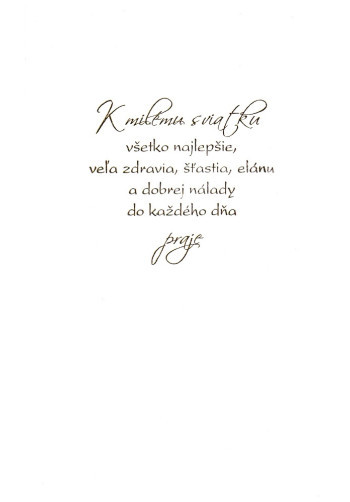 K milému sviatku
všetko najlepšie,
veľa zdravia, šťastia, elánu
a dobrej nálady
do každého dňa
praje